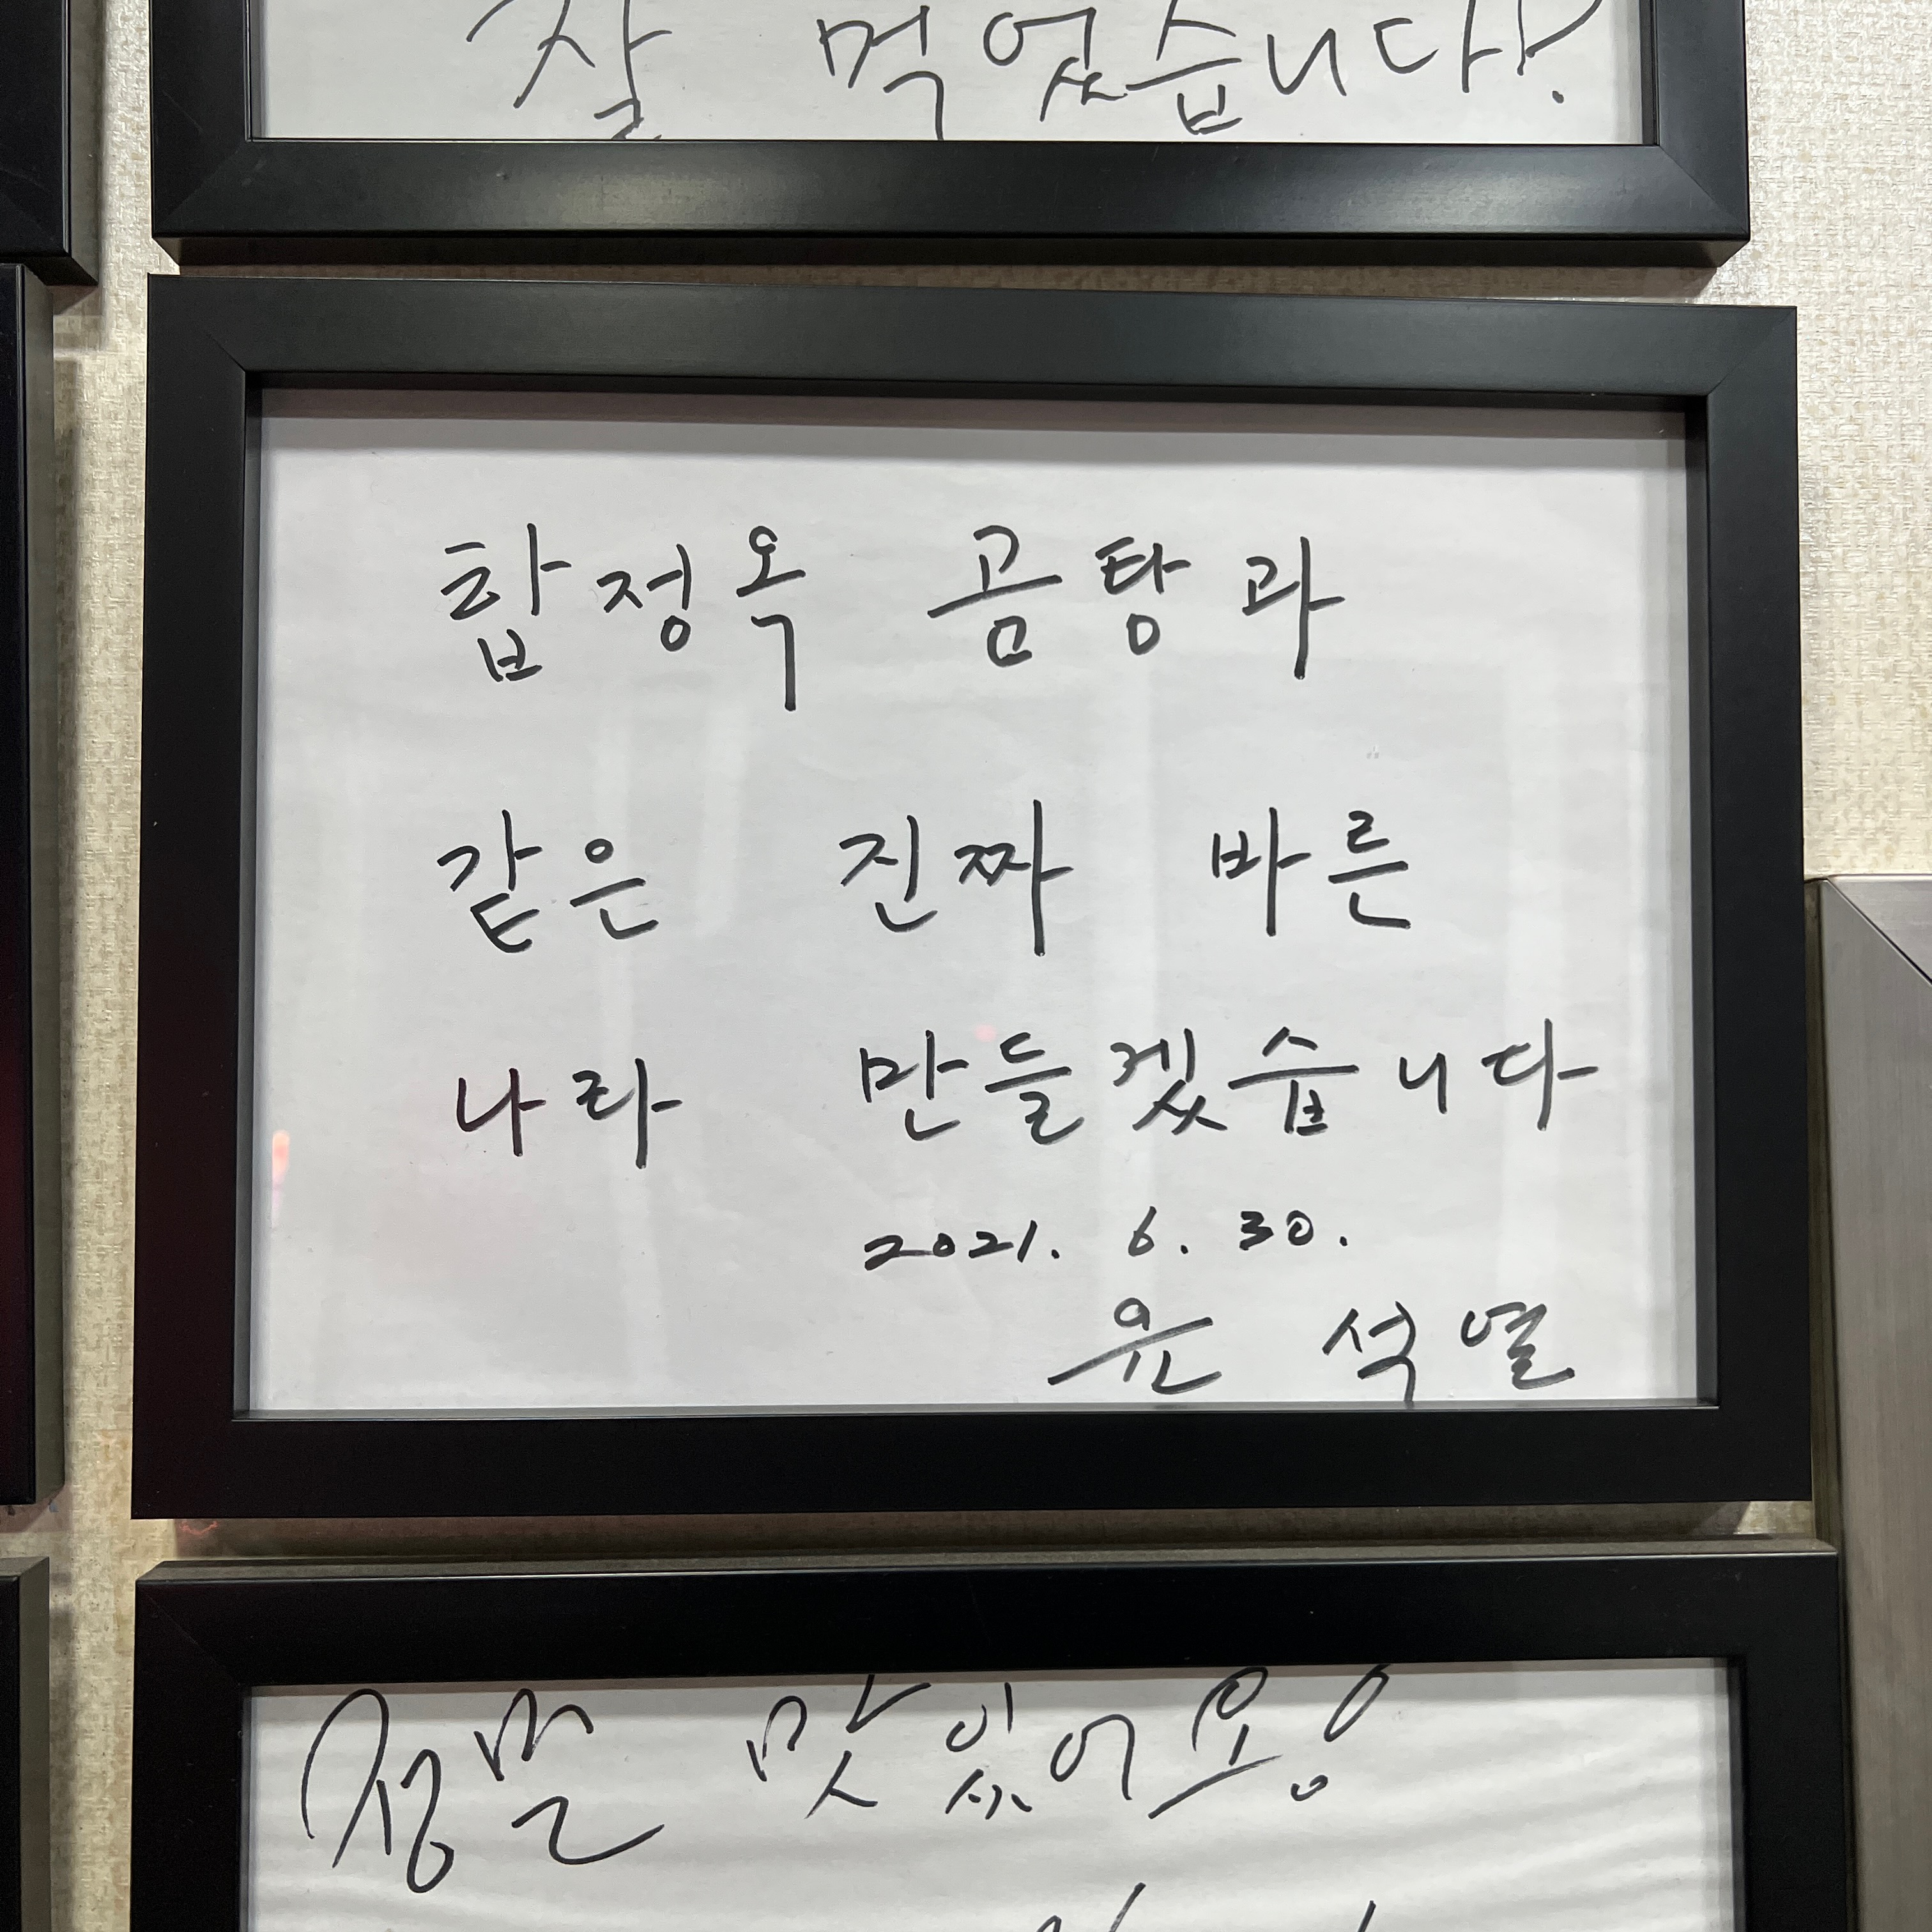 잘 먹었습니다!
합정옥 곰탕과
같은 진짜 바른
나라 만들겠습니다
2021. 6. 30.
윤 석열
정말 맛있어용!